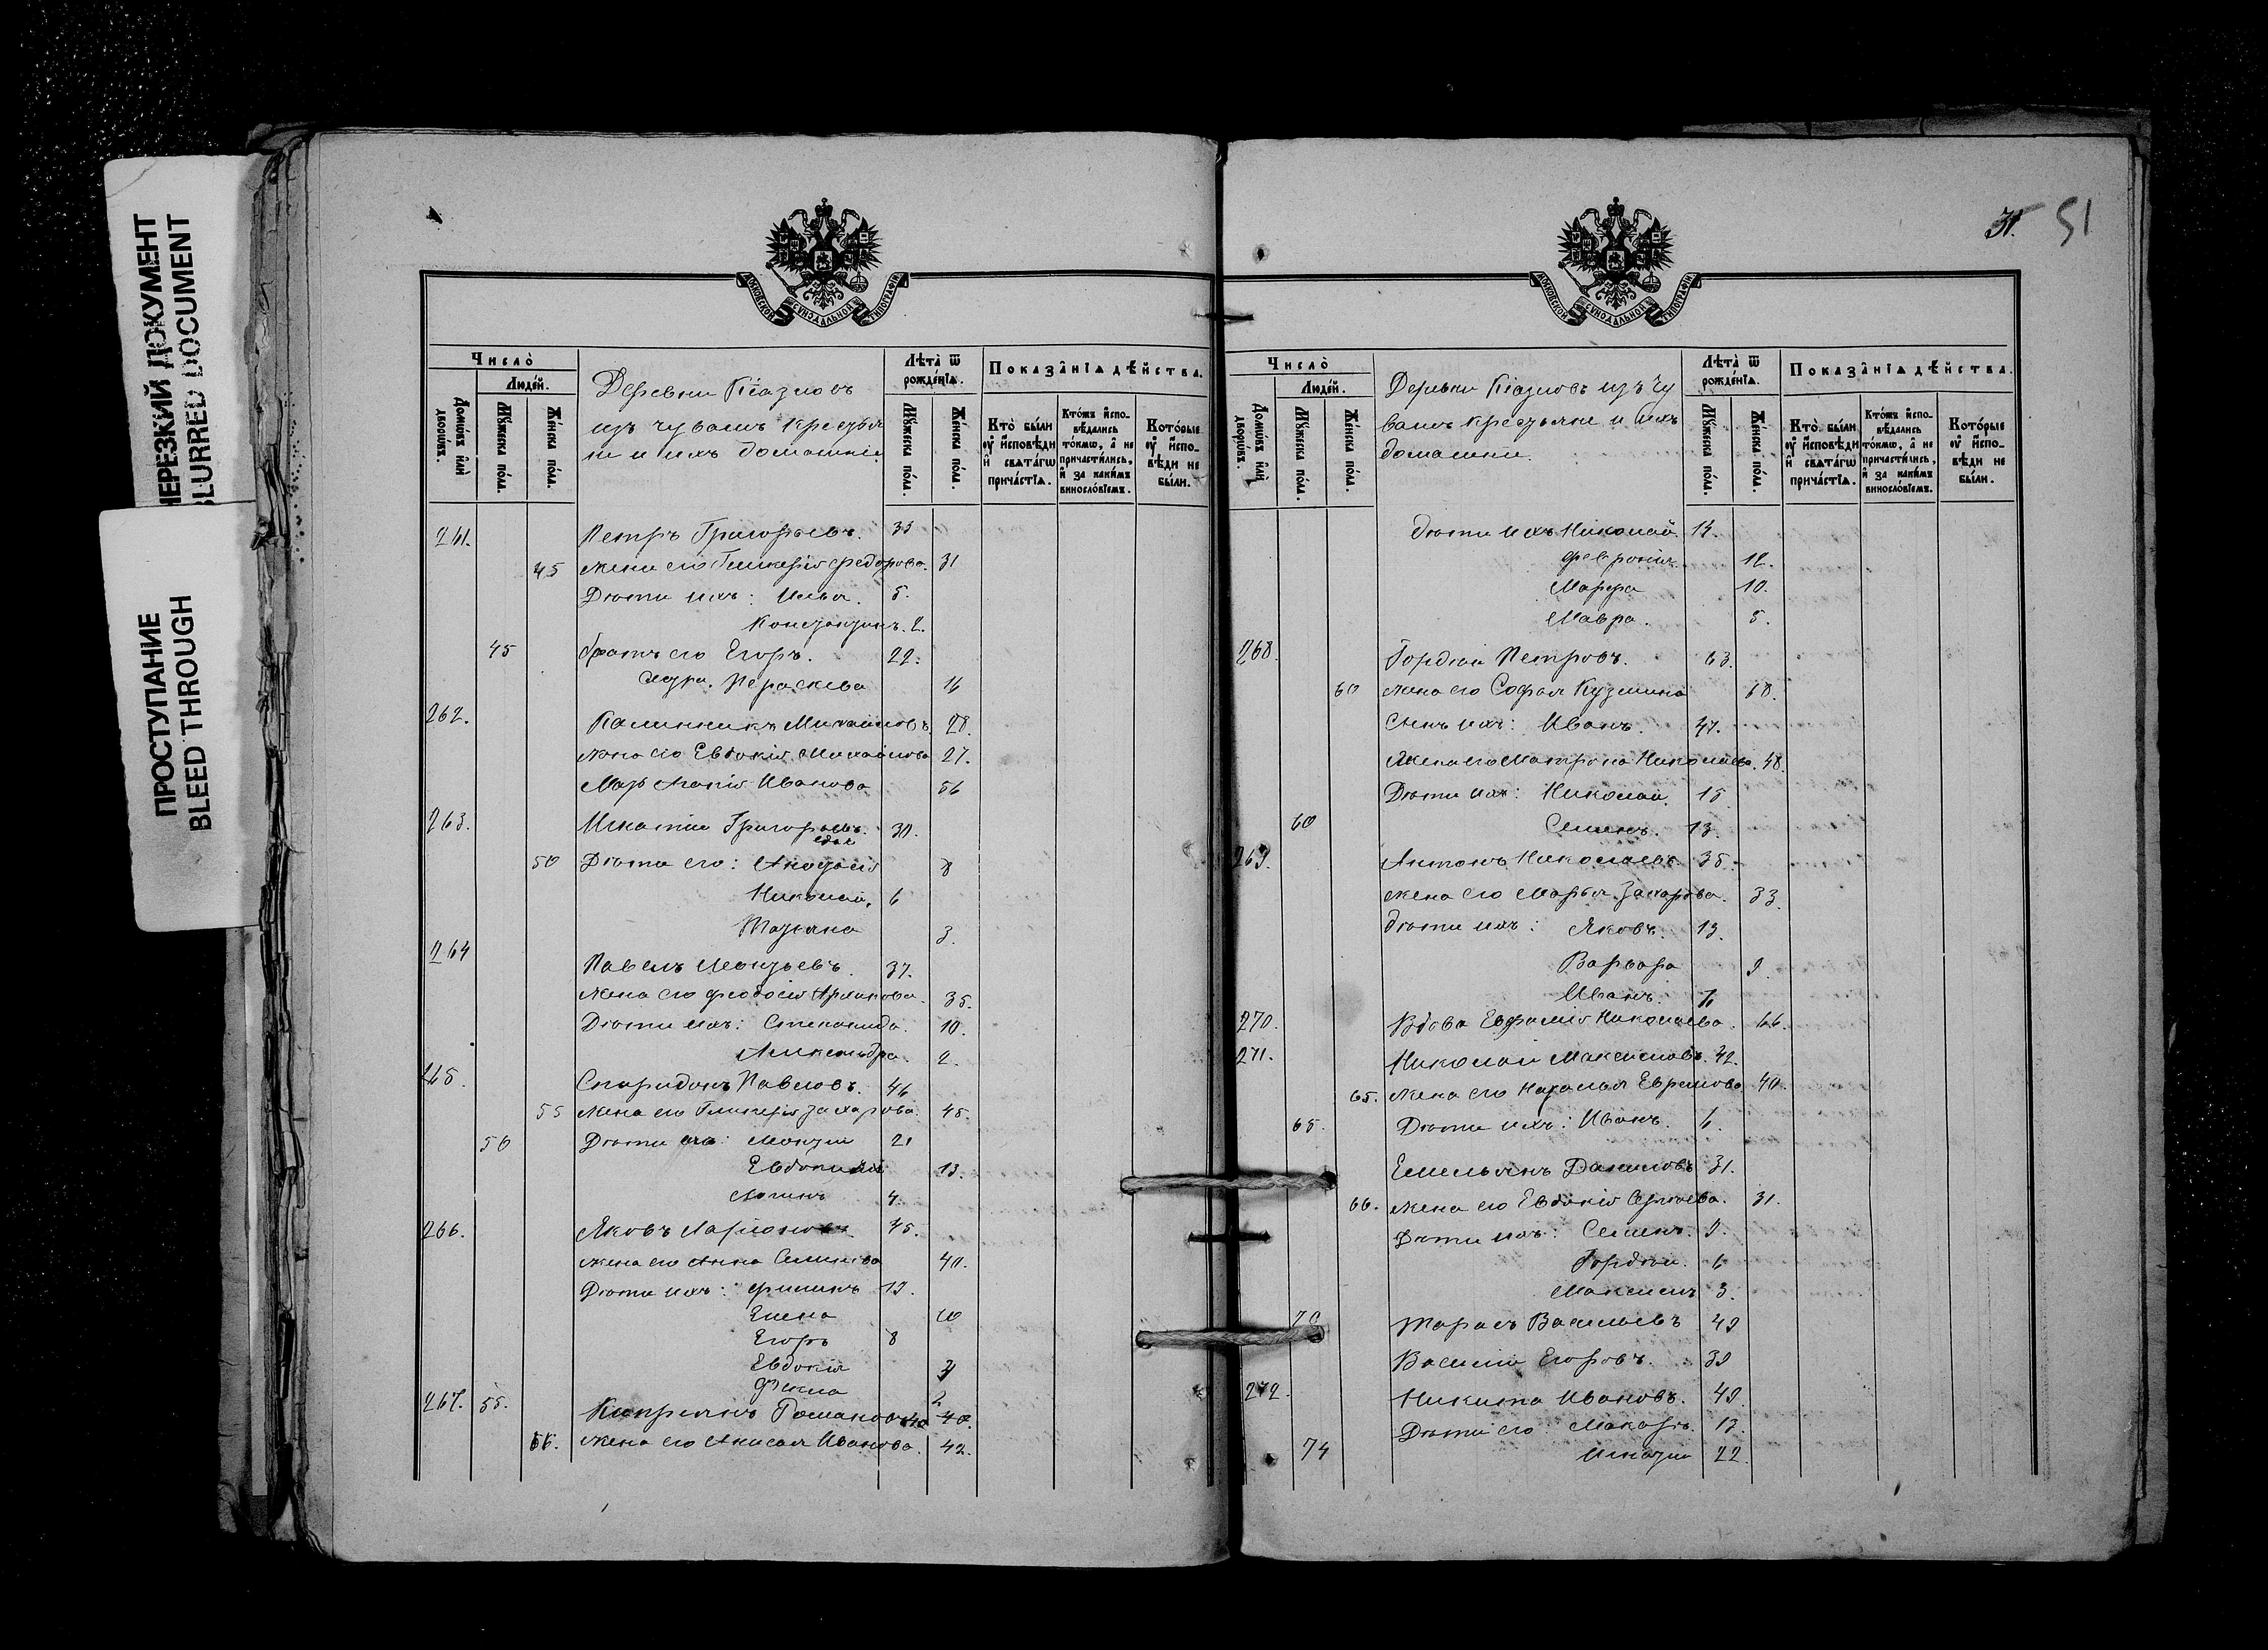 НЕРЕЗКИЙ ДОКУМЕНТ
BLURRED DOCUMENT
ПРОСТУПАНИЕ
BLEED THROUGH
МОСКОВСКОЙ СѴНОДАЛЬНОЙ ТИПОГРАФІИ
Число̀
Людей.
Домѡвъ и҆лѝ дворѡвъ.
Мꙋжеска пола.
Женска пола.
Деревни
изъ чувашъ крестья
не и ихъ домашніе
Лѣта̀ ѿ рожденїѧ.
Мꙋжеска пола.
Женска пола.
Показанїѧ дѣйства.
Кто̀ были ᲂу҆ исповѣди и҆ свѧтагѡ причастїѧ.
Ктожъ исповѣдались токмѡ, а҆ не причастились, и҆ за какимъ винословїемъ.
Которые ᲂу҆ исповѣди не были.
261. Петръ Григорьевъ. 33
45 жена его Гликерія Федорова. 31
Дѣти ихъ: Илья. 5.
Константинъ. 2.
45 братъ его Егоръ. 22.
сестра. Параскева 16
262. Каллиникъ Михайловъ 28.
жена его Евдокія Михайлова 27.
Мать Иванова 56
263. Игнатій Григорьевъ. 30.
вдов
50 Дѣти его: 8
Николай. 6
Татьяна 3.
264 Павелъ 37.
жена его Феодосія 35.
Дѣти ихъ: Степанида. 10.
Александра. 2.
265. Спиридонъ Павловъ. 46
55 жена его Гликерія Захарова. 45.
50 Дѣти его: 21
Евдокия 13.
Логинъ 4.
266. Яковъ Ларіоновъ 35.
жена его Анна Семенова 40.
Дѣти ихъ: Филипъ 12.
Елена 10
Егоръ 8
Евдокія
Фекла 2
267. 55. Кипріянъ Романовъ 40 40.
56. жена его Анисья Иванова. 42.
31. 51
МОСКОВСКОЙ СѴНОДАЛЬНОЙ ТИПОГРАФІИ
Число̀
Людей.
Домѡвъ и҆лѝ дворѡвъ.
Мꙋжеска пола.
Женска пола.
Деревни изъ чу
вашъ крестьяне и ихъ
домашніе.
Лѣта̀ ѿ рожденїѧ.
Мꙋжеска пола.
Женска пола.
Показанїѧ дѣйства.
Кто̀ были ᲂу҆ исповѣди и҆ свѧтагѡ причастїѧ.
Ктожъ исповѣдались токмѡ, а҆ не причастились, и҆ за какимъ винословїемъ.
Которые ᲂу҆ исповѣди не были.
дѣти ихъ Николай 14.
Февронія 12.
Марфа 10.
Мавра. 5.
268. Гордѣй Петровъ. 63.
60 жена его Софья Кузмина 68.
Сынъ ихъ: Иванъ. 47.
Жена его Матрона Николаева. 48.
Дѣти ихъ: Николай. 15
60 Семенъ. 13.
269. Антонъ Николаевъ 35.
жена его Марья Захарова. 33.
дѣти ихъ: Яковъ. 13.
Варвара 9.
Иванъ.
270. Вдова Евфимія Николаева. 66.
271. Николай Максимовъ. 42.
65. жена его Наталья Ефремова 40.
65. Дѣти ихъ: Иванъ. 6.
Емельянъ Даниловъ 31.
66. жена его Евдокія Сергѣева. 31.
Дѣти ихъ: Семенъ. 9.
Гордѣй. 6
Максимъ 3.
70 Тарасъ Васильевъ 49
Василій Егоровъ. 39
272. Никита Ивановъ. 49.
Дѣти его: Макаръ. 17.
74 Игнатій 22.